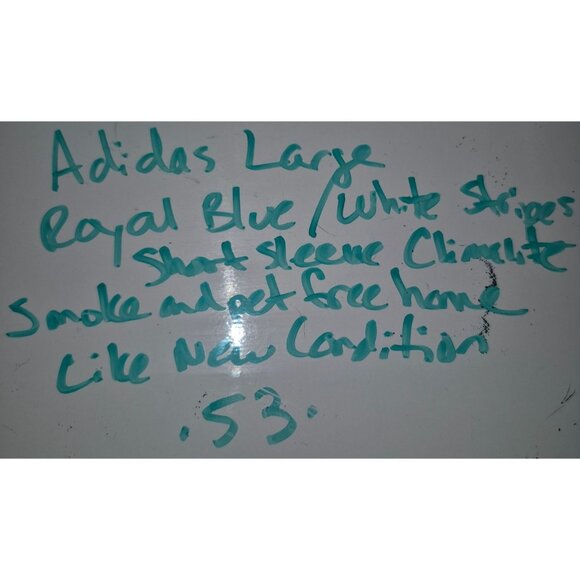 Adidas Large
Royal Blue / White Stripes
Short sleeve Climalite
Smoke and pet free home
Like New Condition
.53.